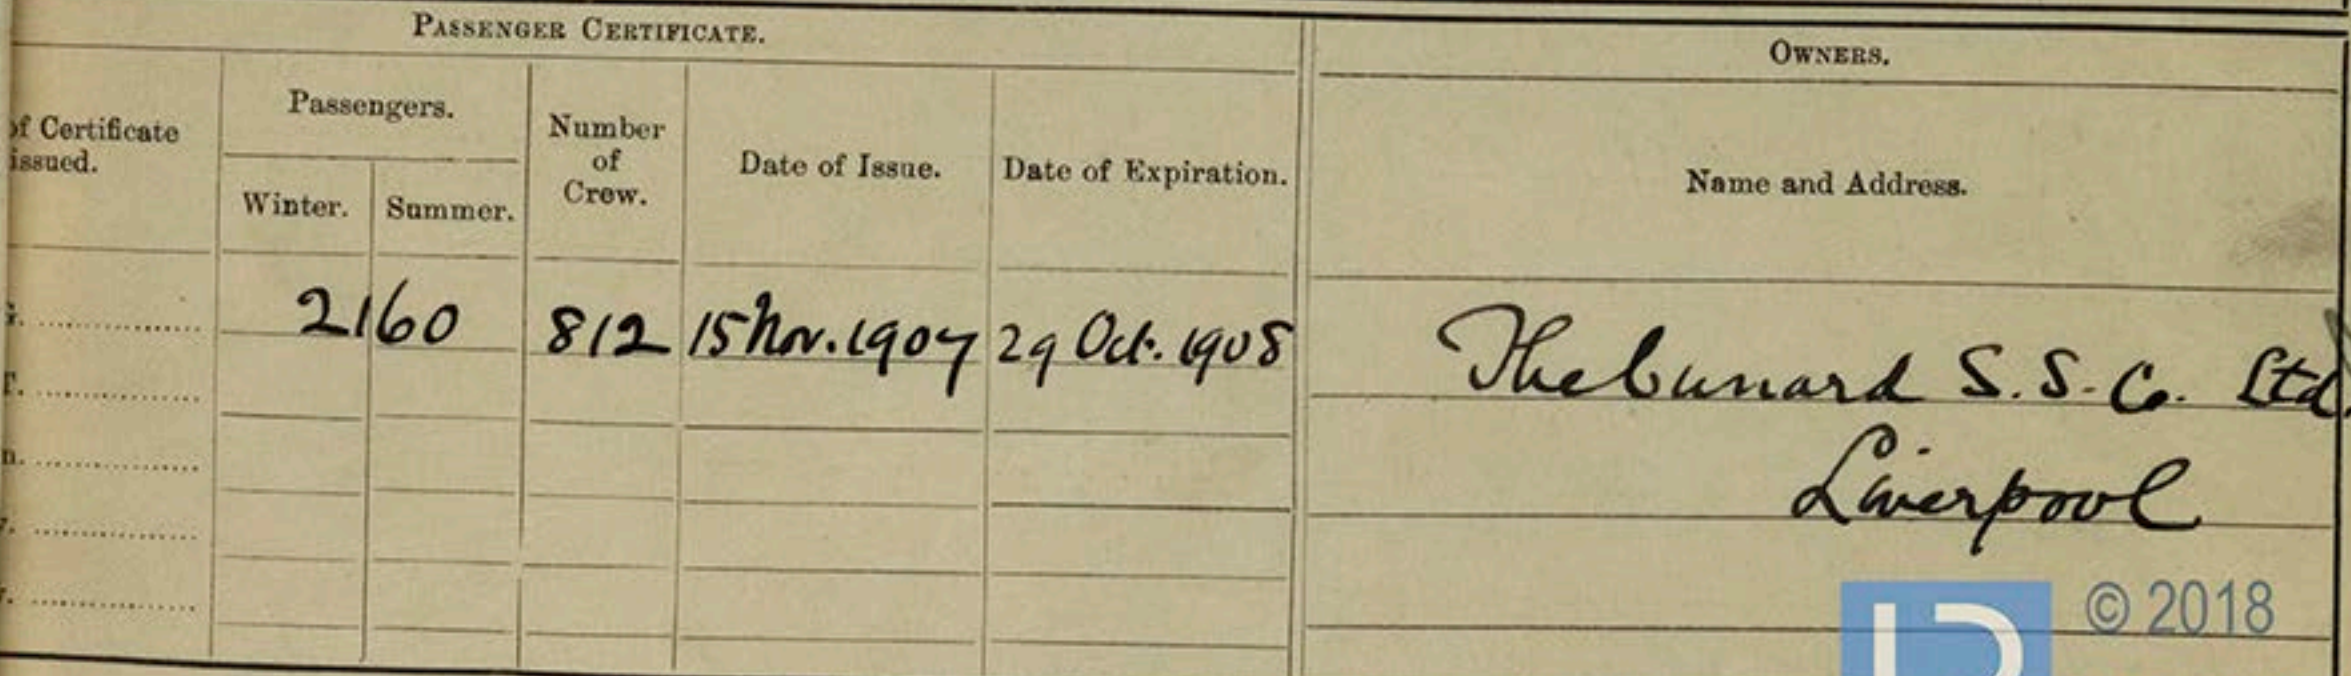 PASSENGER CERTIFICATE.
OWNERS.
of Certificate
issued.
Passengers.
Winter.
Summer.
Number
of
Crew.
Date of Issue.
Date of Expiration.
Name and Address.
2160 812 15 Nov. 1907 29 Oct. 1908 The Cunard S. S. Co. Ltd
Liverpool
© 2018